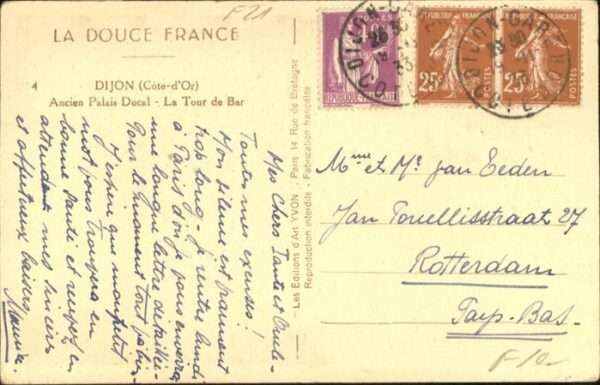 F21
LA DOUCE FRANCE
4
DIJON (Côte-d'Or)
Ancien Palais Ducal - La Tour de Bar
Mes Chers Tante et Oncle -
Toutes mes excuses!
Mon silence est vraiment
trop long - Je rentre lundi
à Paris d'où je vous enverrai
une longue lettre détaillée -
Pour le moment tout va bien
J'espère que ma carte
vous trouvera en
bonne santé et recevez en
attendant mes sincères
et affectueux baisers
Maurice.
- Les Editions d'Art YVON - Paris 14 Rue de Bretagne
Reproduction interdite - Fabrication française
DIJON-GARE
COTE D'OR
40c
POSTES
REPUBLIQUE FRANÇAISE
REPUBLIQUE FRANÇAISE
25c
REPUBLIQUE FRANÇAISE
25c
DIJON GARE
COTE D'OR
Mme et Mr. Jan Eeden
Jan Toucellisstraat 27
Rotterdam
Pays-Bas-
F10-